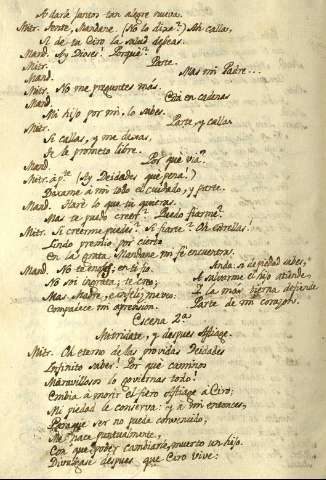 A darle juntos tan alegre nueva.
Mitr. Tente, Mandane, (No lo dixe?) Ah callas,
Si de tu Ciro la salud deseas.
Mand. Ay Dioses! Porquè?
Mitr. Parte.
Mand. Mas mi Padre...
Mitr. No me preguntes mas.
Mand. Està en cadenas
Mi hijo por mi, lo sabes.
Mitr. Parte, y calla
Si callas, y me dexas,
Te le prometo libre.
Mand. Por què via?
Mitr. à pte (Ay Deidades què pena!)
Dexame à mi todo el cuidado, y parte.
Mand. Harè lo que tu quieras.
Mas te puedo creer? Puedo fiarme?
Mitr. Si creerme puedes? Si fiarte? Oh Estrellas!
Lindo premio por cierto
En la grata Mandane mi fè encuentra.
Mand. No te enojes; en ti fio.
No soi ingrata; te creo;
Mas Madre, è infeliz me veo:
Compadece mi aprension.
Anda: si de piedad sabes,
A salvarme el hijo atiende,
Y la mas tierna defiende
Parte de mi corazon.
Escena 2.ª
Mitridate, y despues Astiage.
Mitr. Oh eterno de las providas Deidades
Infinito saber! Por què caminos
Maravillosos lo goviernas todo!
Embia a morir el fiero Astiage à Ciro;
Mi piedad le conserva: y a mi entonces,
Porque ser no pueda convencido,
Me nace puntualmente,
Con que poder cambiarle, muerto un hijo.
Divulgase despues que Ciro vive: